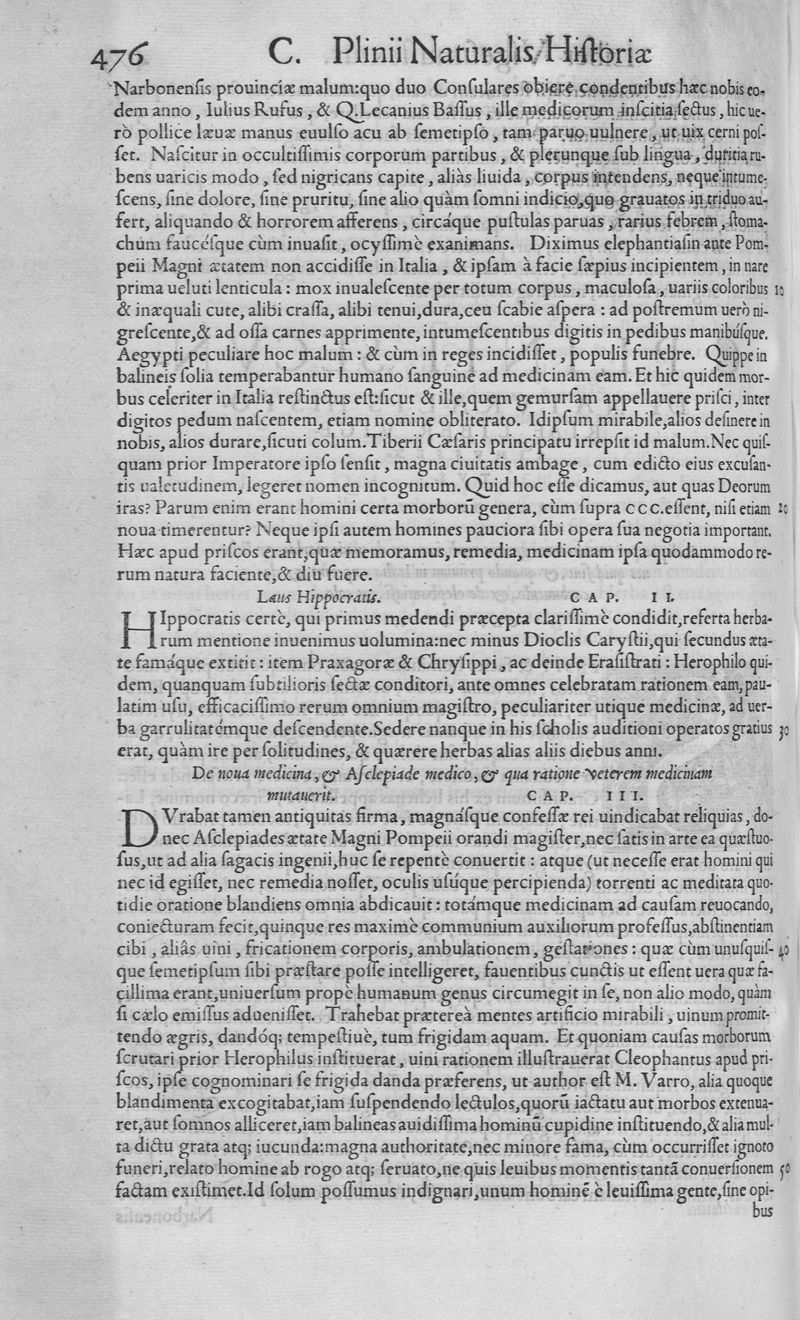 476 C. Plinii Naturalis Historiæ
Narbonensis prouinciæ malum:quo duo Consulares obiere condentibus hæc nobis eo-
dem anno, Iulius Rufus, & Q.Lecanius Bassus, ille medicorum inscitia sectus, hic ue-
rò pollice læuæ manus euulso acu ab semetipso, tam paruo uulnere, ut uix cerni pos-
set. Nascitur in occultissimis corporum partibus, & plerunque sub lingua, duritia ru-
bens uaricis modo, sed nigricans capite, aliàs liuida, corpus intendens, neque intume-
scens, sine dolore, sine pruritu, sine alio quàm somni indicio, quo grauatos in triduo au-
fert, aliquando & horrorem afferens, circáque pustulas paruas, rarius febrem, stoma-
chum faucésque cùm inuasit, ocyssimè exanimans. Diximus elephantiasin ante Pom-
peii Magni ætatem non accidisse in Italia, & ipsam à facie sæpius incipientem, in nare
prima ueluti lenticula: mox inualescente per totum corpus, maculosa, uariis coloribus 10
& inæquali cute, alibi crassa, alibi tenui,dura,ceu scabie aspera: ad postremum uerò ni-
grescente,& ad ossa carnes apprimente, intumescentibus digitis in pedibus manibúsque.
Aegypti peculiare hoc malum: & cùm in reges incidisset, populis funebre. Quippe in
balineis solia temperabantur humano sanguine ad medicinam eam. Et hic quidem mor-
bus celeriter in Italia restinctus est:sicut & ille,quem gemursam appellauere prisci, inter
digitos pedum nascentem, etiam nomine obliterato. Idipsum mirabile,alios desinere in
nobis, alios durare,sicuti colum.Tiberii Cæsaris principatu irrepsit id malum.Nec quis-
quam prior Imperatore ipso sensit, magna ciuitatis ambage, cum edicto eius excusan-
tis ualetudinem, legeret nomen incognitum. Quid hoc esse dicamus, aut quas Deorum
iras? Parum enim erant homini certa morborū genera, cùm supra CCC.essent, nisi etiam 20
noua timerentur? Neque ipsi autem homines pauciora sibi opera sua negotia important.
Hæc apud priscos erant,quæ memoramus, remedia, medicinam ipsa quodammodo re-
rum natura faciente,& diu fuere.
Laus Hippocratis. CAP. II.
HIppocratis certè, qui primus medendi præcepta clarissimè condidit,referta herba-
rum mentione inuenimus uolumina:nec minus Dioclis Carystii,qui secundus æta-
te famáque extitit: item Praxagoræ & Chrysippi, ac deinde Erasistrati: Herophilo qui-
dem, quanquam subtilioris sectæ conditori, ante omnes celebratam rationem eam, pau-
latim usu, efficacissimo rerum omnium magistro, peculiariter utique medicinæ, ad uer-
ba garrulitatémque descendente.Sedere nanque in his scholis auditioni operatos gratius 30
erat, quàm ire per solitudines, & quærere herbas alias aliis diebus anni.
De noua medicina, & Asclepiade medico, & qua ratione veterem medicinam
mutauerit. CAP. III.
DVrabat tamen antiquitas firma, magnásque confessæ rei uindicabat reliquias, do-
nec Asclepiades ætate Magni Pompeii orandi magister,nec satis in arte ea quæstuo-
sus,ut ad alia sagacis ingenii,huc se repentè conuertit: atque (ut necesse erat homini qui
nec id egisset, nec remedia nosset, oculis usúque percipienda) torrenti ac meditata quo-
tidie oratione blandiens omnia abdicauit: totámque medicinam ad causam reuocando,
coniecturam fecit,quinque res maximè communium auxiliorum professus,abstinentiam
cibi, aliâs uini, fricationem corporis, ambulationem, gestationes: quæ cùm unusquis- 40
que semetipsum sibi præstare posse intelligeret, fauentibus cunctis ut essent uera quæ fa-
cillima erant,uniuersum propè humanum genus circumegit in se, non alio modo, quàm
si cælo emissus aduenisset. Trahebat prætereà mentes artificio mirabili, uinum promit-
tendo ægris, dandóq; tempestiuè, tum frigidam aquam. Et quoniam causas morborum
scrutari prior Herophilus instituerat, uini rationem illustrauerat Cleophantus apud pri-
scos, ipse cognominari se frigida danda præferens, ut author est M. Varro, alia quoque
blandimenta excogitabat,iam suspendendo lectulos,quorū iactatu aut morbos extenua-
ret,aut somnos alliceret,iam balineas auidissima hominū cupidine instituendo,& alia mul-
ta dictu grata atq; iucunda:magna authoritate,nec minore fama, cùm occurrisset ignoto
funeri,relato homine ab rogo atq; seruato,ne quis leuibus momentis tantā conuersionem 50
factam existimet.Id solum possumus indignari,unum hominē è leuissima gente,sine opi-
bus